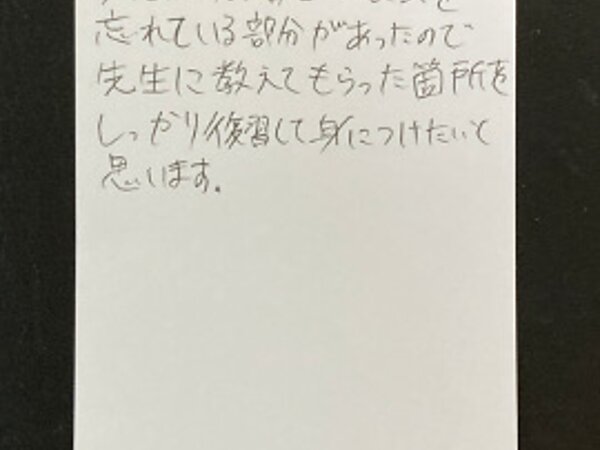 忘れている部分があったので
先生に教えてもらった箇所を
しっかり復習して身につけたいと
思います。